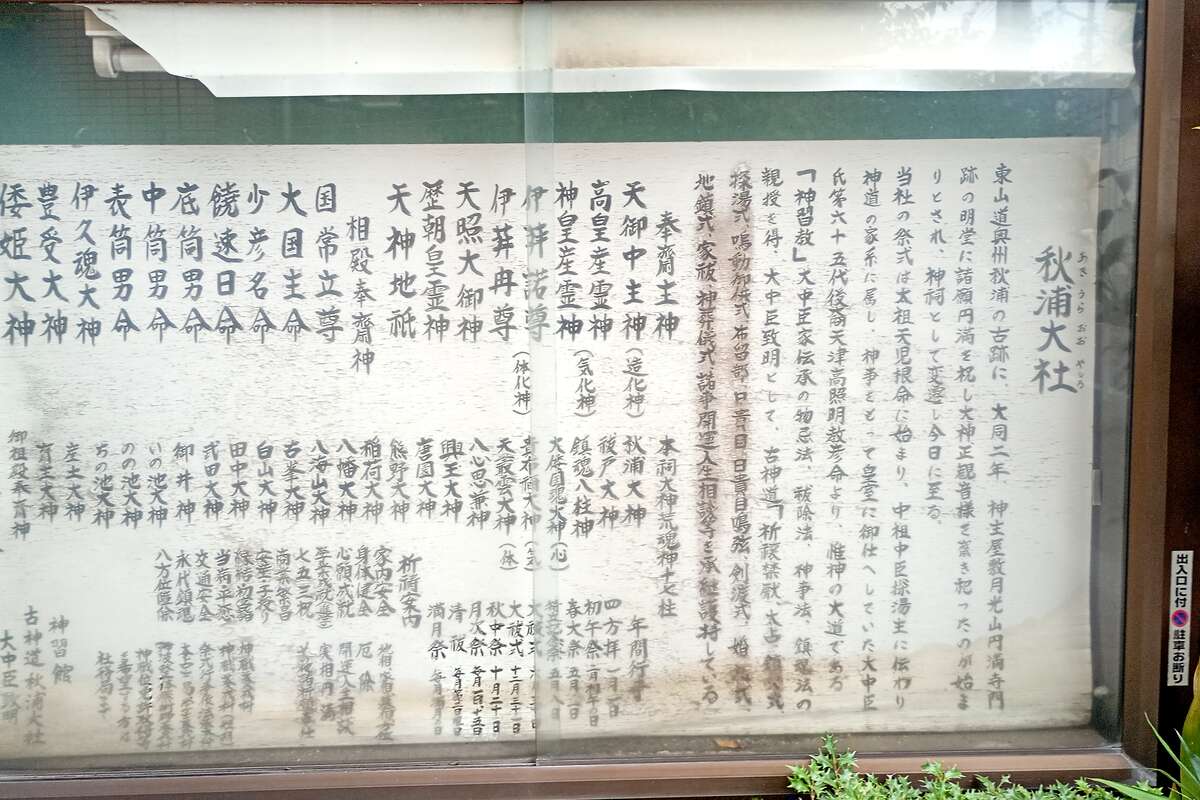 秋浦大社
あき うら おお やしろ
東山道奥州秋浦の古跡に、大同二年 神主屋敷月光山円満寺門
跡の明堂に諸願円満を祝し大神正観音様を斎き祀ったのが始ま
りとされ、神祠として変遷し今日に至る。
当社の祭式は太祖天児根命に始まり、中祖中臣探湯主に伝わり
神道の家系に属し、神事をもって皇室に御仕へしていた大中臣
氏第六十五代後裔天津高照明教彦命より、惟神の大道である
「神習教」大中臣家伝承の物忌法、祓除法、神事法、鎮魂法の
親授を得、大中臣致明として、古神道「祈禳禁厭、太占、鎮魂式
探湯式、鳴動御供式、布留部、口貴日、日貴目鳴弦、剣渡式、婚
地鎮式、家祓、神葬儀式、諸事開運人生相談等を承継護持している。
奉齋主神
天御中主神(造化神)
高皇産霊神
神皇産霊神(気化神)
伊弉諾尊
伊弉冉尊(体化神)
天照大御神
歴朝皇霊神
天神地祇
相殿奉齋神
国常立尊
大国主命
少彦名命
饒速日命
底筒男命
中筒男命
表筒男命
伊久魂大神
豊受大神
倭姫大神
本祠大神荒魂神十七柱
秋浦大神
祓戸大神
鎮魂八柱神
大座国魂大神(心)
貴布禰大神(気)
天叢雲大神(体)
八心思兼神
興玉大神
唐園大神
熊野大神
稲荷大神
八幡大神
八海山大神
古峯大神
白山大神
田中大神
弐田大神
御井神
いの池大神
のの池大神
ちの池大神
産土大神
育王大神
御祖殿奉齋神
年間行事
四方拝 一月一日
初午祭 二月初午日
春大祭 五月三日
大祓式 十二月三十一日
秋中祭 十月二十日
月次祭 毎月一日十五日
清祓
満月祭 毎月満月日
祈祷案内
家内安全
身体健全
心願成就
学業成就
七五三祝
商売繁昌
安産子授り
縁結初宮詣
当病平癒
交通安全
永代頌徳
八方位除
厄除
開運人生相談
神習館
古神道 秋浦大社
大中臣致明
出入口に付
駐車お断り